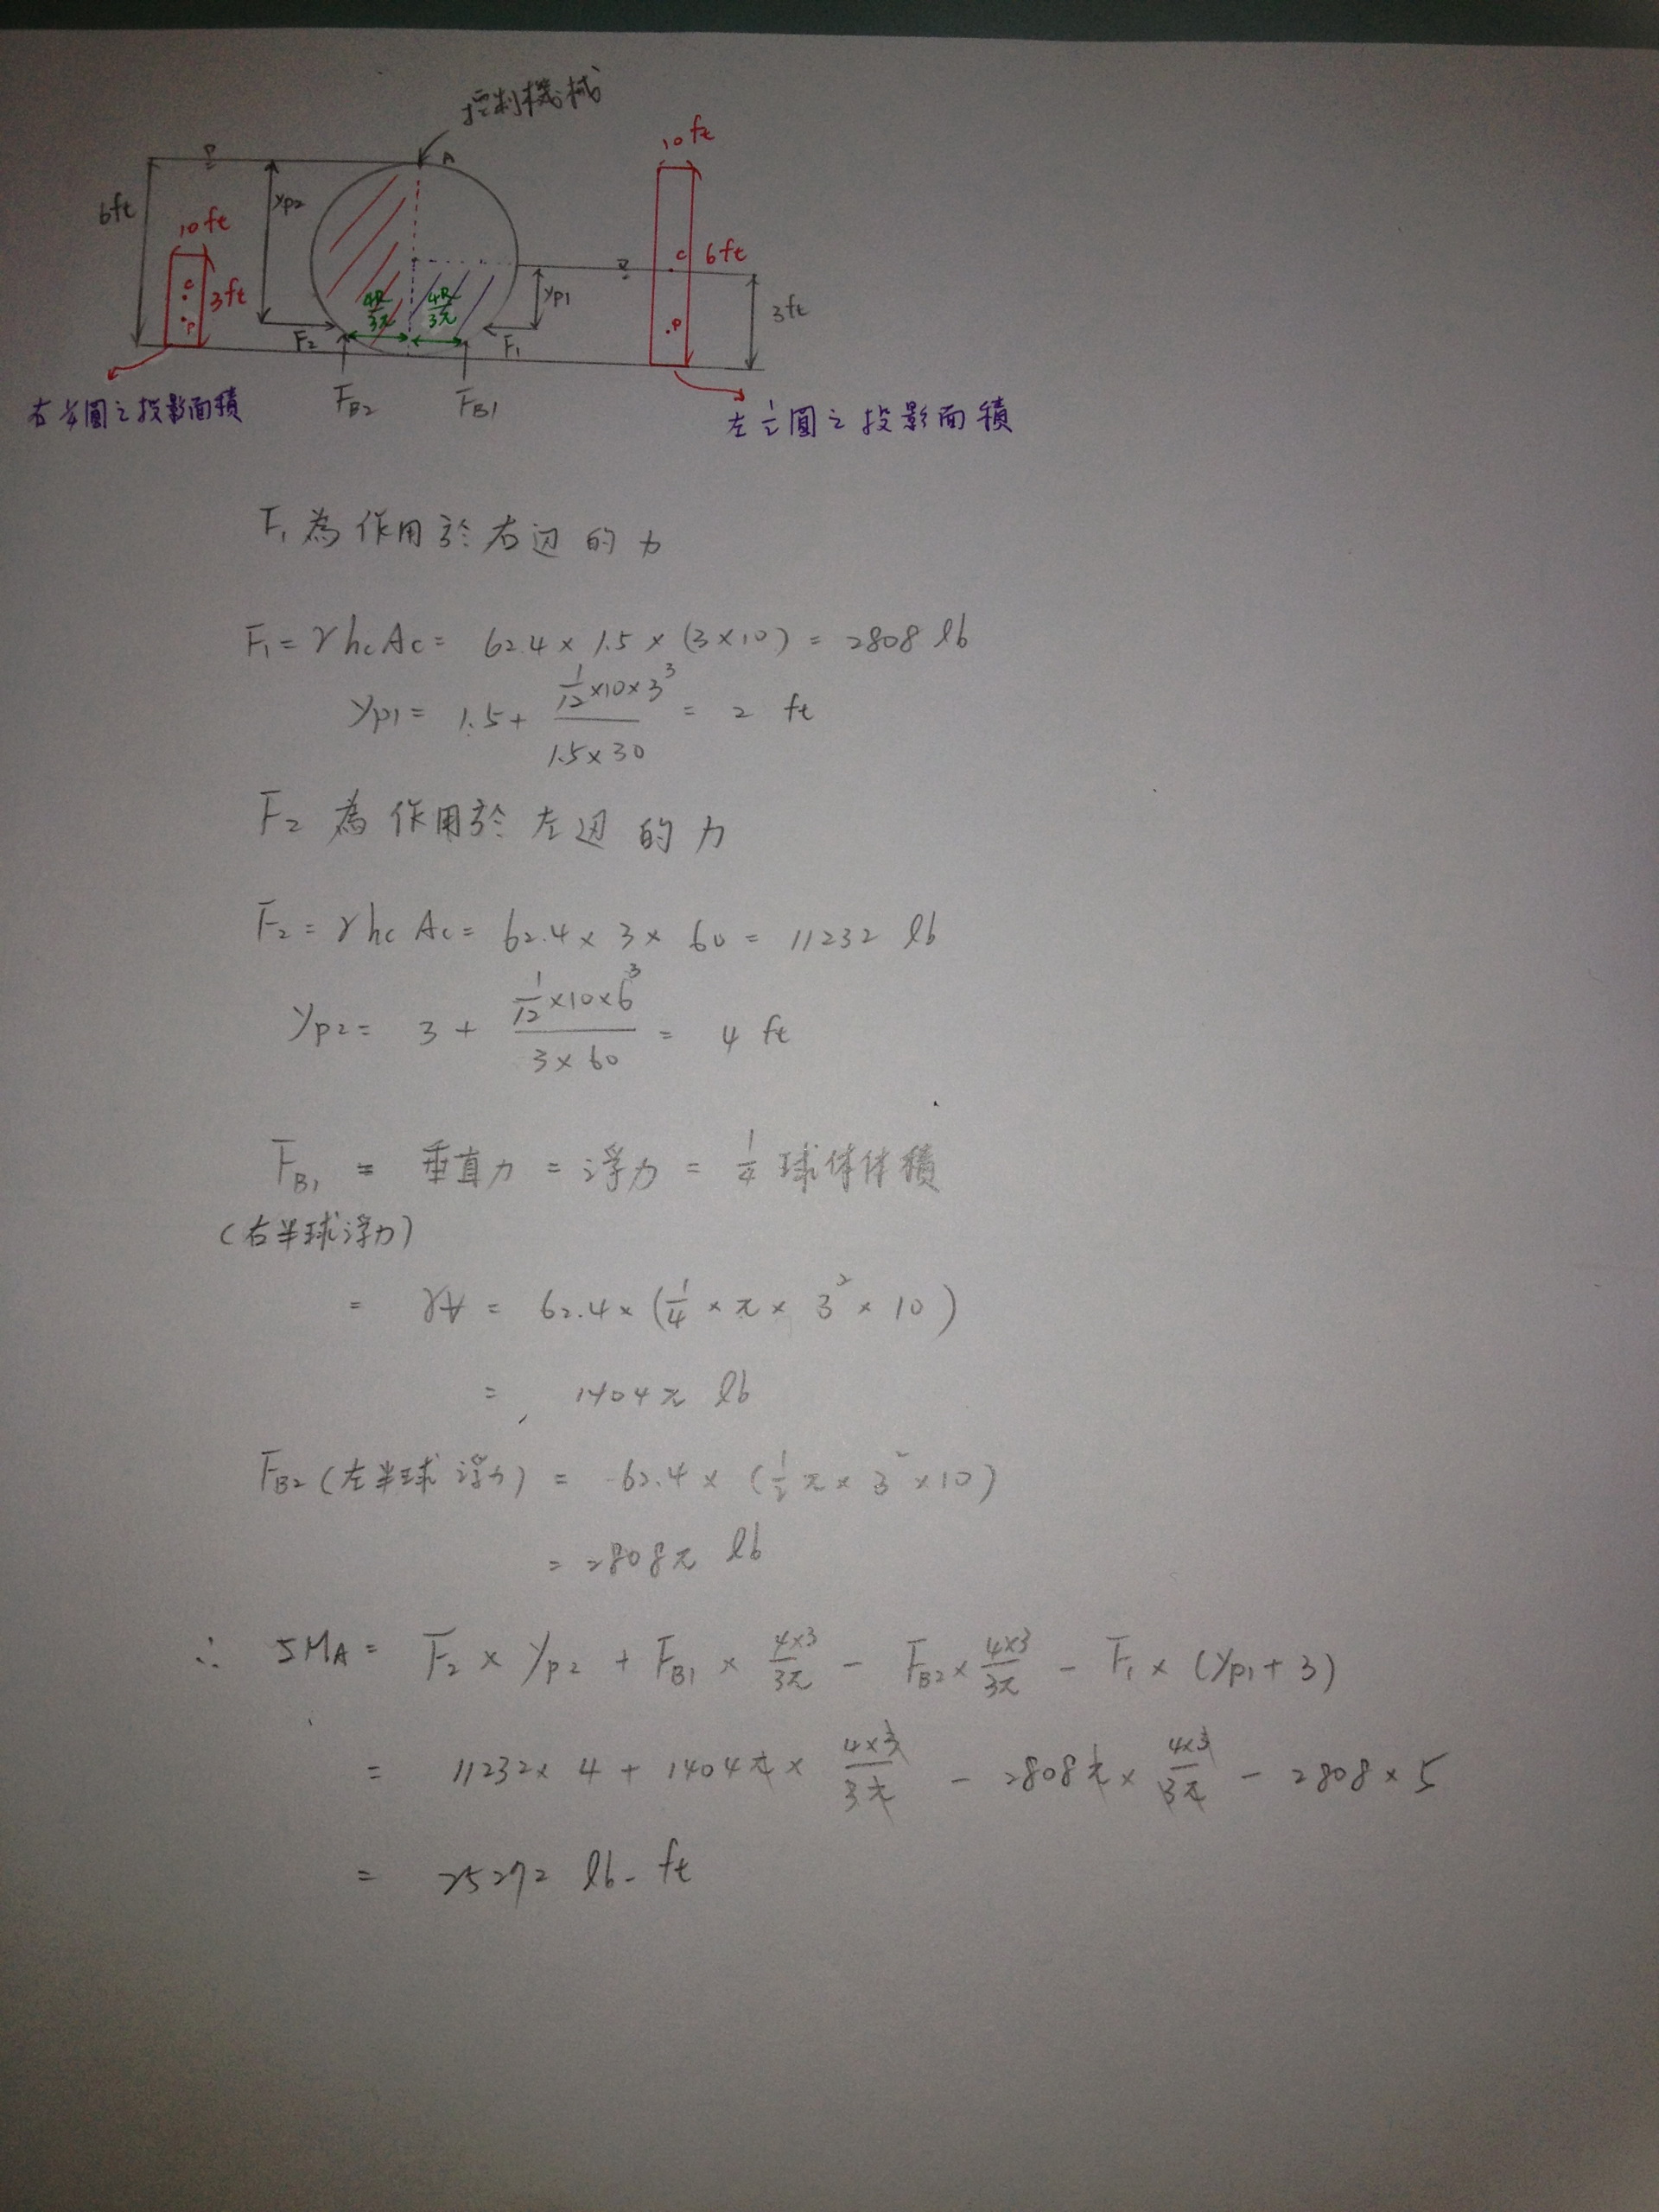 控制機械
A
6ft
yp2
10ft
c
p
3ft
F2
FB2
4R/3π
4R/3π
FB1
F1
yp1
3ft
10ft
c
6ft
p
右¼圓之投影面積
左½圓之投影面積
F1為作用於右边的力
F1 = γhcAc = 62.4 × 1.5 × (3×10) = 2808 lb
yp1 = 1.5 + (1/12 ×10×3³)/(1.5×30) = 2 ft
F2 為作用於左边的力
F2 = γhcAc = 62.4 × 3 × 60 = 11232 lb
yp2 = 3 + (1/12 ×10×6³)/(3×60) = 4 ft
FB1 = 垂直力 = 浮力 = 1/4 球体体積
(右半球浮力)
= γV = 62.4 × (1/4 × π × 3² × 10)
= 1404π lb
FB2 (左半球浮力) = 62.4 × (1/2 π × 3² × 10)
= 2808π lb
∴ ΣMA = F2 × yp2 + FB1 × 4×3/3π − FB2 × 4×3/3π − F1 × (yp1 + 3)
= 11232 × 4 + 1404π × 4×3/3π − 2808π × 4×3/3π − 2808 × 5
= 25272 lb-ft